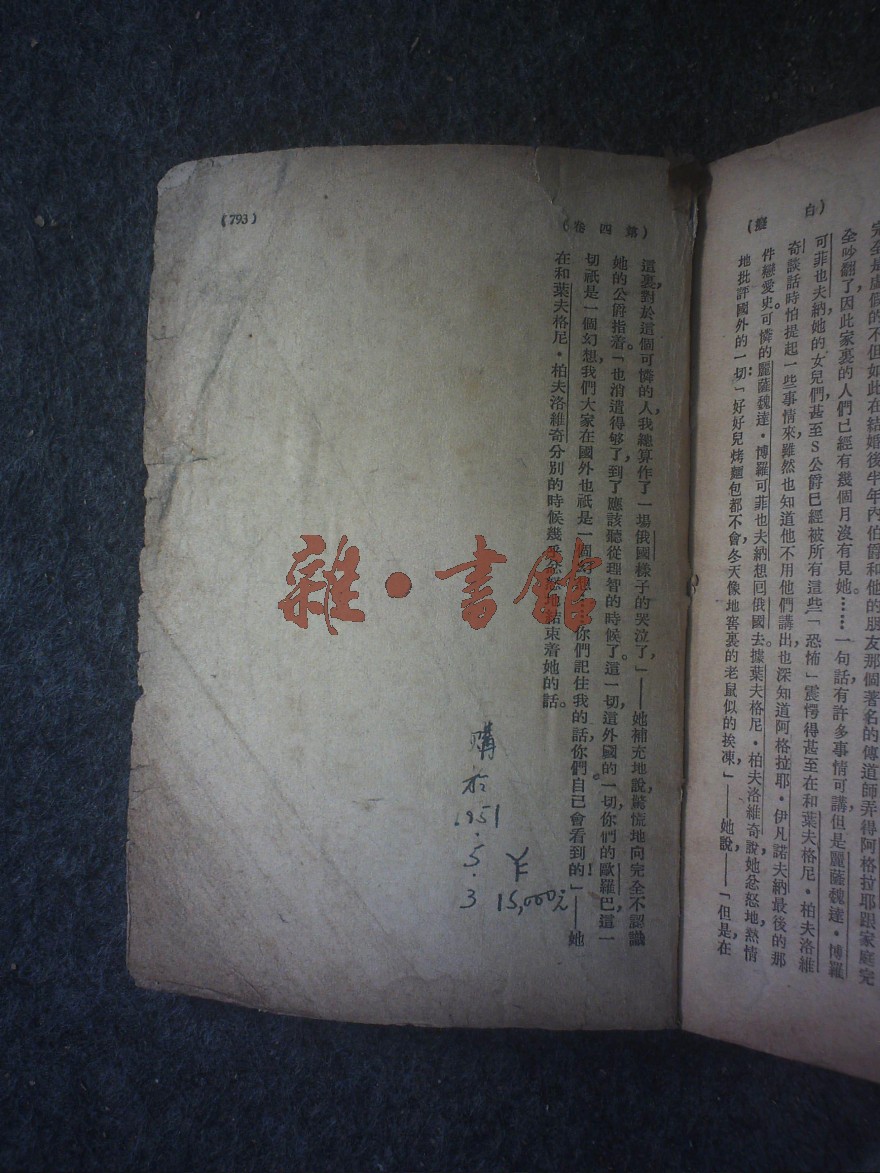 (白癡)
完全是虛假的不但如此在結婚後半年內伯爵和他的朋友那個著名的傳道師弄得阿格拉耶跟家庭完
全吵翻了，因此家裏的人們已經有幾個月沒有見她……一句話，有許多事情可講，但是麗薩魏達·博羅
可菲也夫納，她的女兒們，甚至S公爵已經被所有這些「恐怖」震愕得甚至在和葉夫格尼·柏夫洛維
奇談話時怕提起一些事情來，雖然也知道他不用他們講出，也深知道阿格拉耶·伊凡諾夫納最後的那
件戀愛史。可憐的麗薩魏達·博羅可菲也夫納想回俄國去。據葉夫格尼·柏夫洛維奇說，她忿怒地，熱情
地批評國外的一切：「好好兒烤麵包都不會，冬天像地窖裏的老鼠似的挨凍，」——她說，——「但是在
(第四卷)
(793)
這裏，對於這個可憐的人，我總算作了一場俄國樣子的哭泣了，」——她補充地說，驚慌地向完全不認識
她的公爵指着。「也消遣得够了，到了應該聽從理智的時候了。這一切，這外國的一切，你們的歐羅巴，這一
切祇是一個幻想，我們大家在國外也祇是一個幻想，你們記住我的話，你們自己會看到的！」——她
在和葉夫格尼·柏夫洛維奇分別的時候，幾乎忿怒地結束着她的話。
購於1951.5.3
¥15,000元
雜·書館